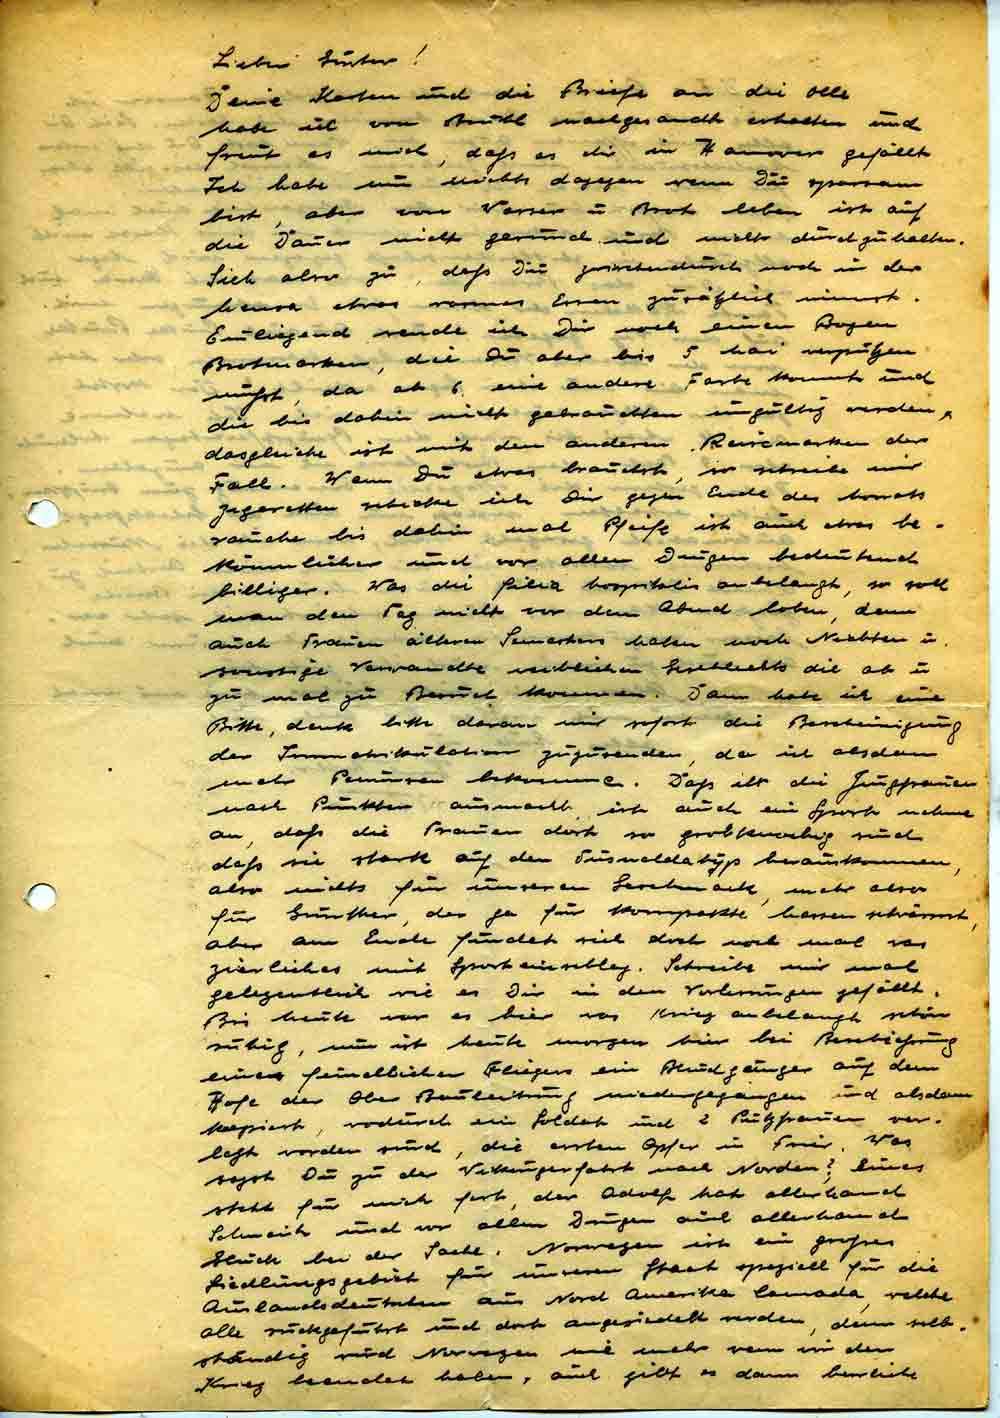 Lieber Günter!
Deine Karten und die Briefe an die Olle
habe ich von Brühl nachgesandt erhalten und
freut es mich, daß es dir in Hanover gefällt
Ich habe nun nichts dagegen wenn Du sparsam
bist, aber von Wasser u Brot leben ist auf
die Dauer nicht gesund und nicht durchzuhalten.
Sieh also zu, daß Du zwischendurch noch in der
Mensa etwas warmes Essen zusätzlich nimmst.
Einliegend sende ich Dir noch einen Bogen
Brotmarken, die Du aber bis 5 Mai verputzen
mußt, da ab 6. eine andere Farbe kommt und
die bis dahin nicht gebrauchten ungültig werden,
dasgleiche ist mit den anderen Reisemarken der
Fall. Wenn Du etwas brauchst, so schreibe mir
Zigaretten schicke ich Dir gegen Ende des Monats
rauche bis dahin mal Pfeife ist auch etwas be-
kömmlicher und vor allen Dingen bedeutend
billiger. Was die filia hospitalis anbelangt, so soll
man den Tag nicht vor dem Abend loben, denn
auch Frauen älteren Semesters haben noch Nichten u
sonstige Verwandte weiblichen Geschlechts die ab u
zu mal zu Besuch kommen. Dann habe ich eine
Bitte, denk bitte daran mir sofort die Bescheinigung
der Immatrikulation zuzusenden, da ich alsdann
mehr Penunsen bekomme. Daß ihr die Jungfrauen
nach Punkten ausmacht, ist auch ein Sport nehme
an, daß die Frauen dort so grobknochig sind
daß sie stark auf den Tusneldatyp herauskommen,
also nichts für unseren Geschmack, mehr also
für Günther, der ja für kompakte Massen schwärmt,
aber am Ende findet sich doch noch mal was
zierliches mit Sporteinschlag. Schreibe mir mal
gelegentlich wie es Dir in den Vorlesungen gefällt.
Bis heute war es hier was Krieg anbelangt schön
ruhig, nun ist heute morgen hier bei Beschießung
eines feindlichen Fliegers ein Blindgänger auf dem
Hofe der Ober Bauleitung niedergegangen und alsdann
krepiert, wodurch ein Soldat und 2 Putzfrauen ver-
letzt worden sind, die ersten Opfer in Trier. Was
sagst Du zu der Vikingerfahrt nach Norden? Eines
steht für mich fest, der Adolf hat allerhand
Schneid und vor allen Dingen auch allerhand
Glück bei der Sache. Norwegen ist ein großes
Siedlungsgebiet für unseren Staat speziell für die
Auslandsdeutschen aus Nord Amerika Canada, welche
alle rückgeführt und dort angesiedelt werden, denn selb-
ständig wird Norwegen nie mehr wenn wir den
Krieg beendet haben, auch gibt es dann herrliche